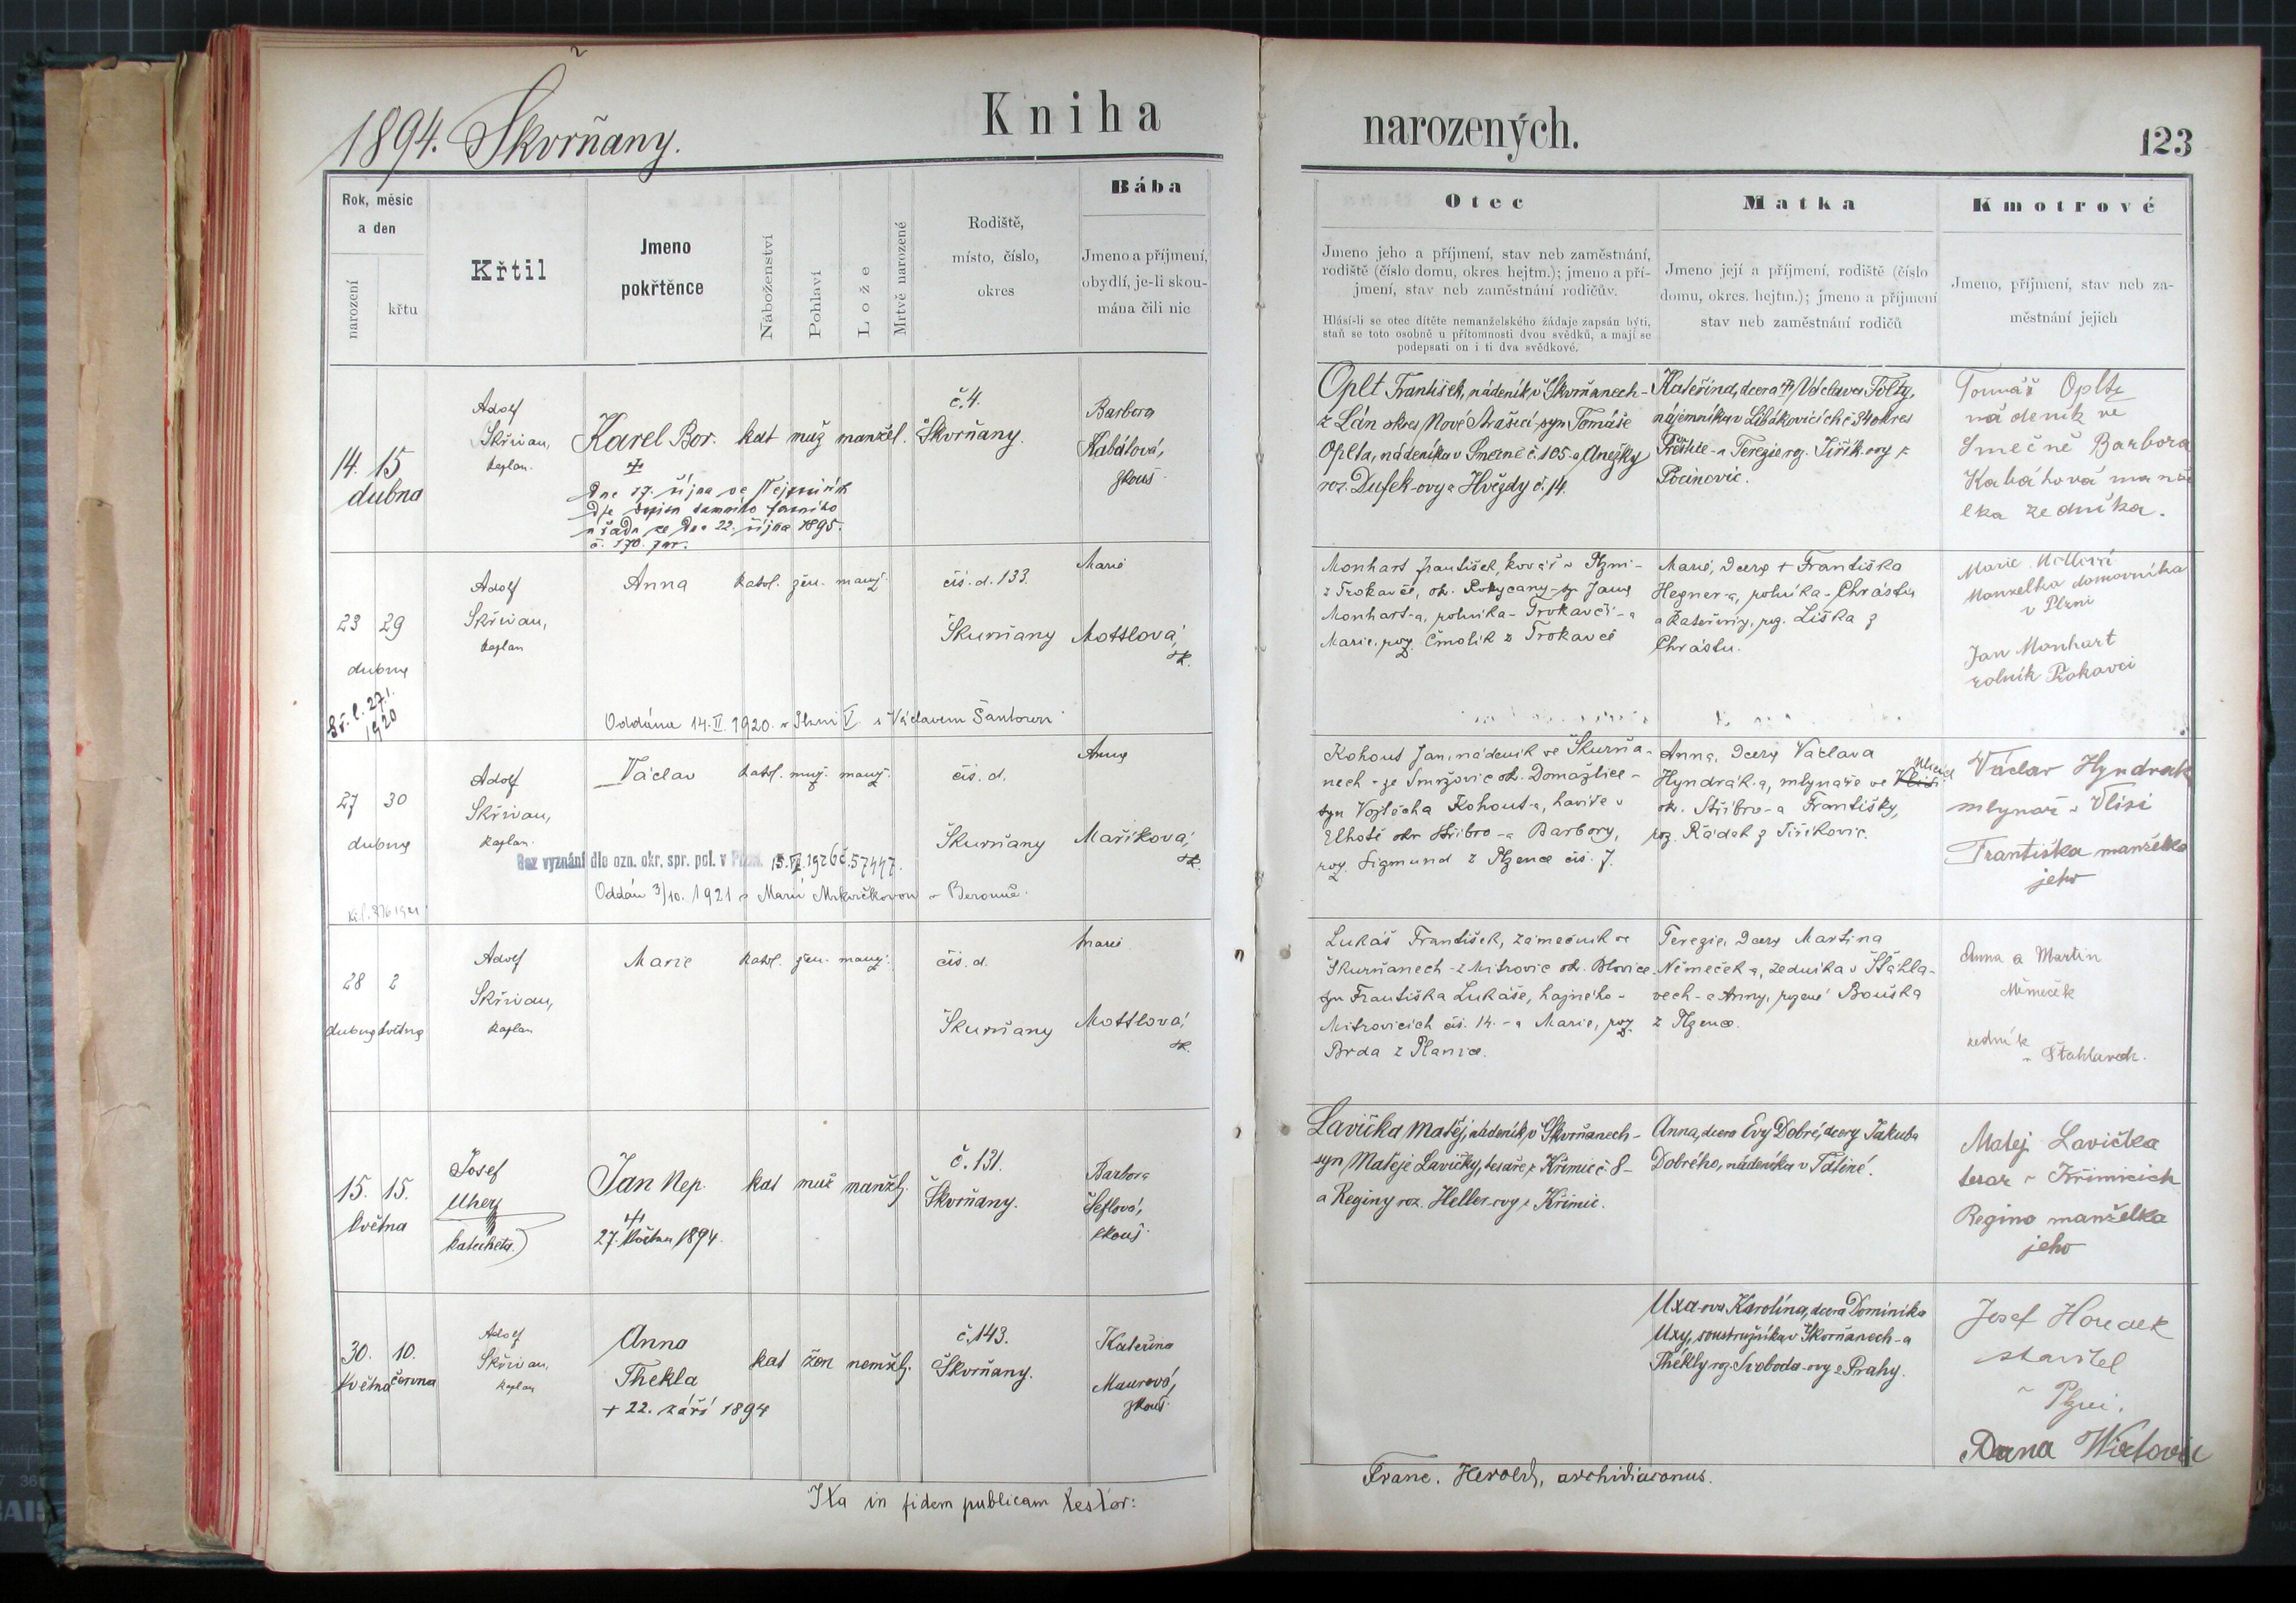 1894. Škvrňany.
Kniha
narozených.
123
Rok, měsíc
a den
narození
křtu
Křtil
Jmeno
pokřtěnce
Náboženství
Pohlaví
Lože
Mrtvě narozené
Rodiště,
místo, číslo,
okres
Bába
Jmeno a příjmení,
obydlí, je-li skou-
mána čili nic
Otec
Jmeno jeho a příjmení, stav neb zaměstnání,
rodiště (číslo domu, okres. hejtm.); jmeno a pří-
jmení, stav neb zaměstnání rodičův.
Hlásí-li se otec dítěte nemanželského žádaje zapsán býti,
staň se toto osobně u přítomnosti dvou svědků, a mají se
podepsati on i ti dva svědkové.
Matka
Jmeno její a příjmení, rodiště (číslo
domu, okres. hejtm.); jmeno a příjmení
stav neb zaměstnání rodičů
Kmotrové
Jmeno, příjmení, stav neb za-
městnání jejich
14. 15
dubna
Adolf
Skřivan,
kaplan.
Karel Bor.
Dne 17. října ve
dle
úřadu ze dne 22. října 1895.
č. 170. far.
kat muž manžel.
č. 4.
Škvrňany.
Barbora
Kabátová,
zkouš.
Oplt František, nádeník v Škvrňanech-
z Lán okres Nové Strašecí-syn Tomáše
Oplta, nádeníka v Smečně č. 105-a Anežky
roz. Dufek-ovy z Hvězdy č. 14.
Kateřina, dcera Václava Folty,
nájemníka v Libákovicích č 34 okres
Přeštice-a Terezie roz. Jiřík-ovy z
Počinovic.
Tomáš Oplt
nádeník ve
Smečně Barbora
Kabátová manž
elka zedníka.
23 29
dubna
Adolf
Skřivan,
kaplan
Anna
katol. žen. manž.
čís. d. 133.
Škurňany
Marie
Mottlová,
zk.
Monhart František, kovář v Plzni-
z Trokavče, ok. Rokycany-syn Jana
Monhart-a, rolníka-Trokavčí-a
Marie, roz. Čmolík z Trokavče
Marie, dcera + Františka
Hegner-a, rolníka-Chrástu
a Kateřiny, roz. Liška z
Chrástu.
Marie
Manželka domovníka
v Plzni
Jan Monhart
rolník Trokavci
27.1.
1920
Oddána 14.II.1920. v Plzni V. s Václavem Šantorou
27 30
dubna
Adolf
Skřivan,
kaplan.
Václav
katol. muž. manž.
čís. d.
Škurňany
Anna
Maříková,
zk.
Bez vyznání dle ozn. okr. spr. pol. v Plzni. 15.VI.1926 č. 57447.
Oddán 3/10. 1921 s Marií Mrkvičkovou v Berouně.
Kohout Jan, nádeník ve Škurňa-
nech-ze Smržovic ok. Domažlice-
syn Vojtěcha Kohout-a, havíře v
Elhotě okr Stříbro-a Barbory,
roz. Sigmund z Plzence čís. 7.
Anna, dcera Václava
Hyndrák-a, mlynáře ve
ok. Stříbro-a Františky,
roz. Řádek z Jiříkovic.
Václav Hyndrak
mlynář v Vlisi
Františka manželka
jeho
28 2
dubna května
Adolf
Skřivan,
kaplan
Marie
katol. žen. manž.
čís. d.
Škurňany
Marie
Mottlová,
zk.
Lukáš František, zámečník ve
Škurňanech-z Mitrovic ok. Blovice
syn Františka Lukáše, hajného-
Mitrovicích čís. 14.-a Marie, roz.
Brda z Planice.
Terezie, dcera Martina
Němeček a, zedníka v Šťáhla-
vech-a Anny, rozené Bouška
z Plzence.
Anna a Martin
Němeček
zedník
v Štahlavech.
15. 15.
května
Josef
Uher
katecheta.
Jan Nep.
27. května 1894.
kat muž manžlj.
č. 131.
Škvrňany.
Barbora
Šeflová,
zkouš.
Lavička Matěj, nádeník v Škvrňanech-
syn Matěje Lavičky, tesaře z Křimic č. 8-
a Reginy roz. Heller-ovy z Křimic.
Anna, dcera Evy Dobré, dcery Jakuba
Dobrého, nádeníka v Tatiné.
Matej Lavička
tesar v Křimicich
Regina manželka
jeho
30. 10.
května června
Adolf
Skřivan,
kaplan
Anna
Thekla
+ 22. září 1894
kat žen nemžlj.
č. 143.
Škvrňany.
Kateřina
Maurová,
zkouš.
Uxa-ova Karolína, dcera Dominika
Uxy, soustružníka v Škvrňanech-a
Thékly roz. Svoboda-ovy z Prahy.
Josef Horedek
stavitel
v Plzni.
Anna
Ita in fidem publicam testor:
Franc. Herold, archidiaconus.